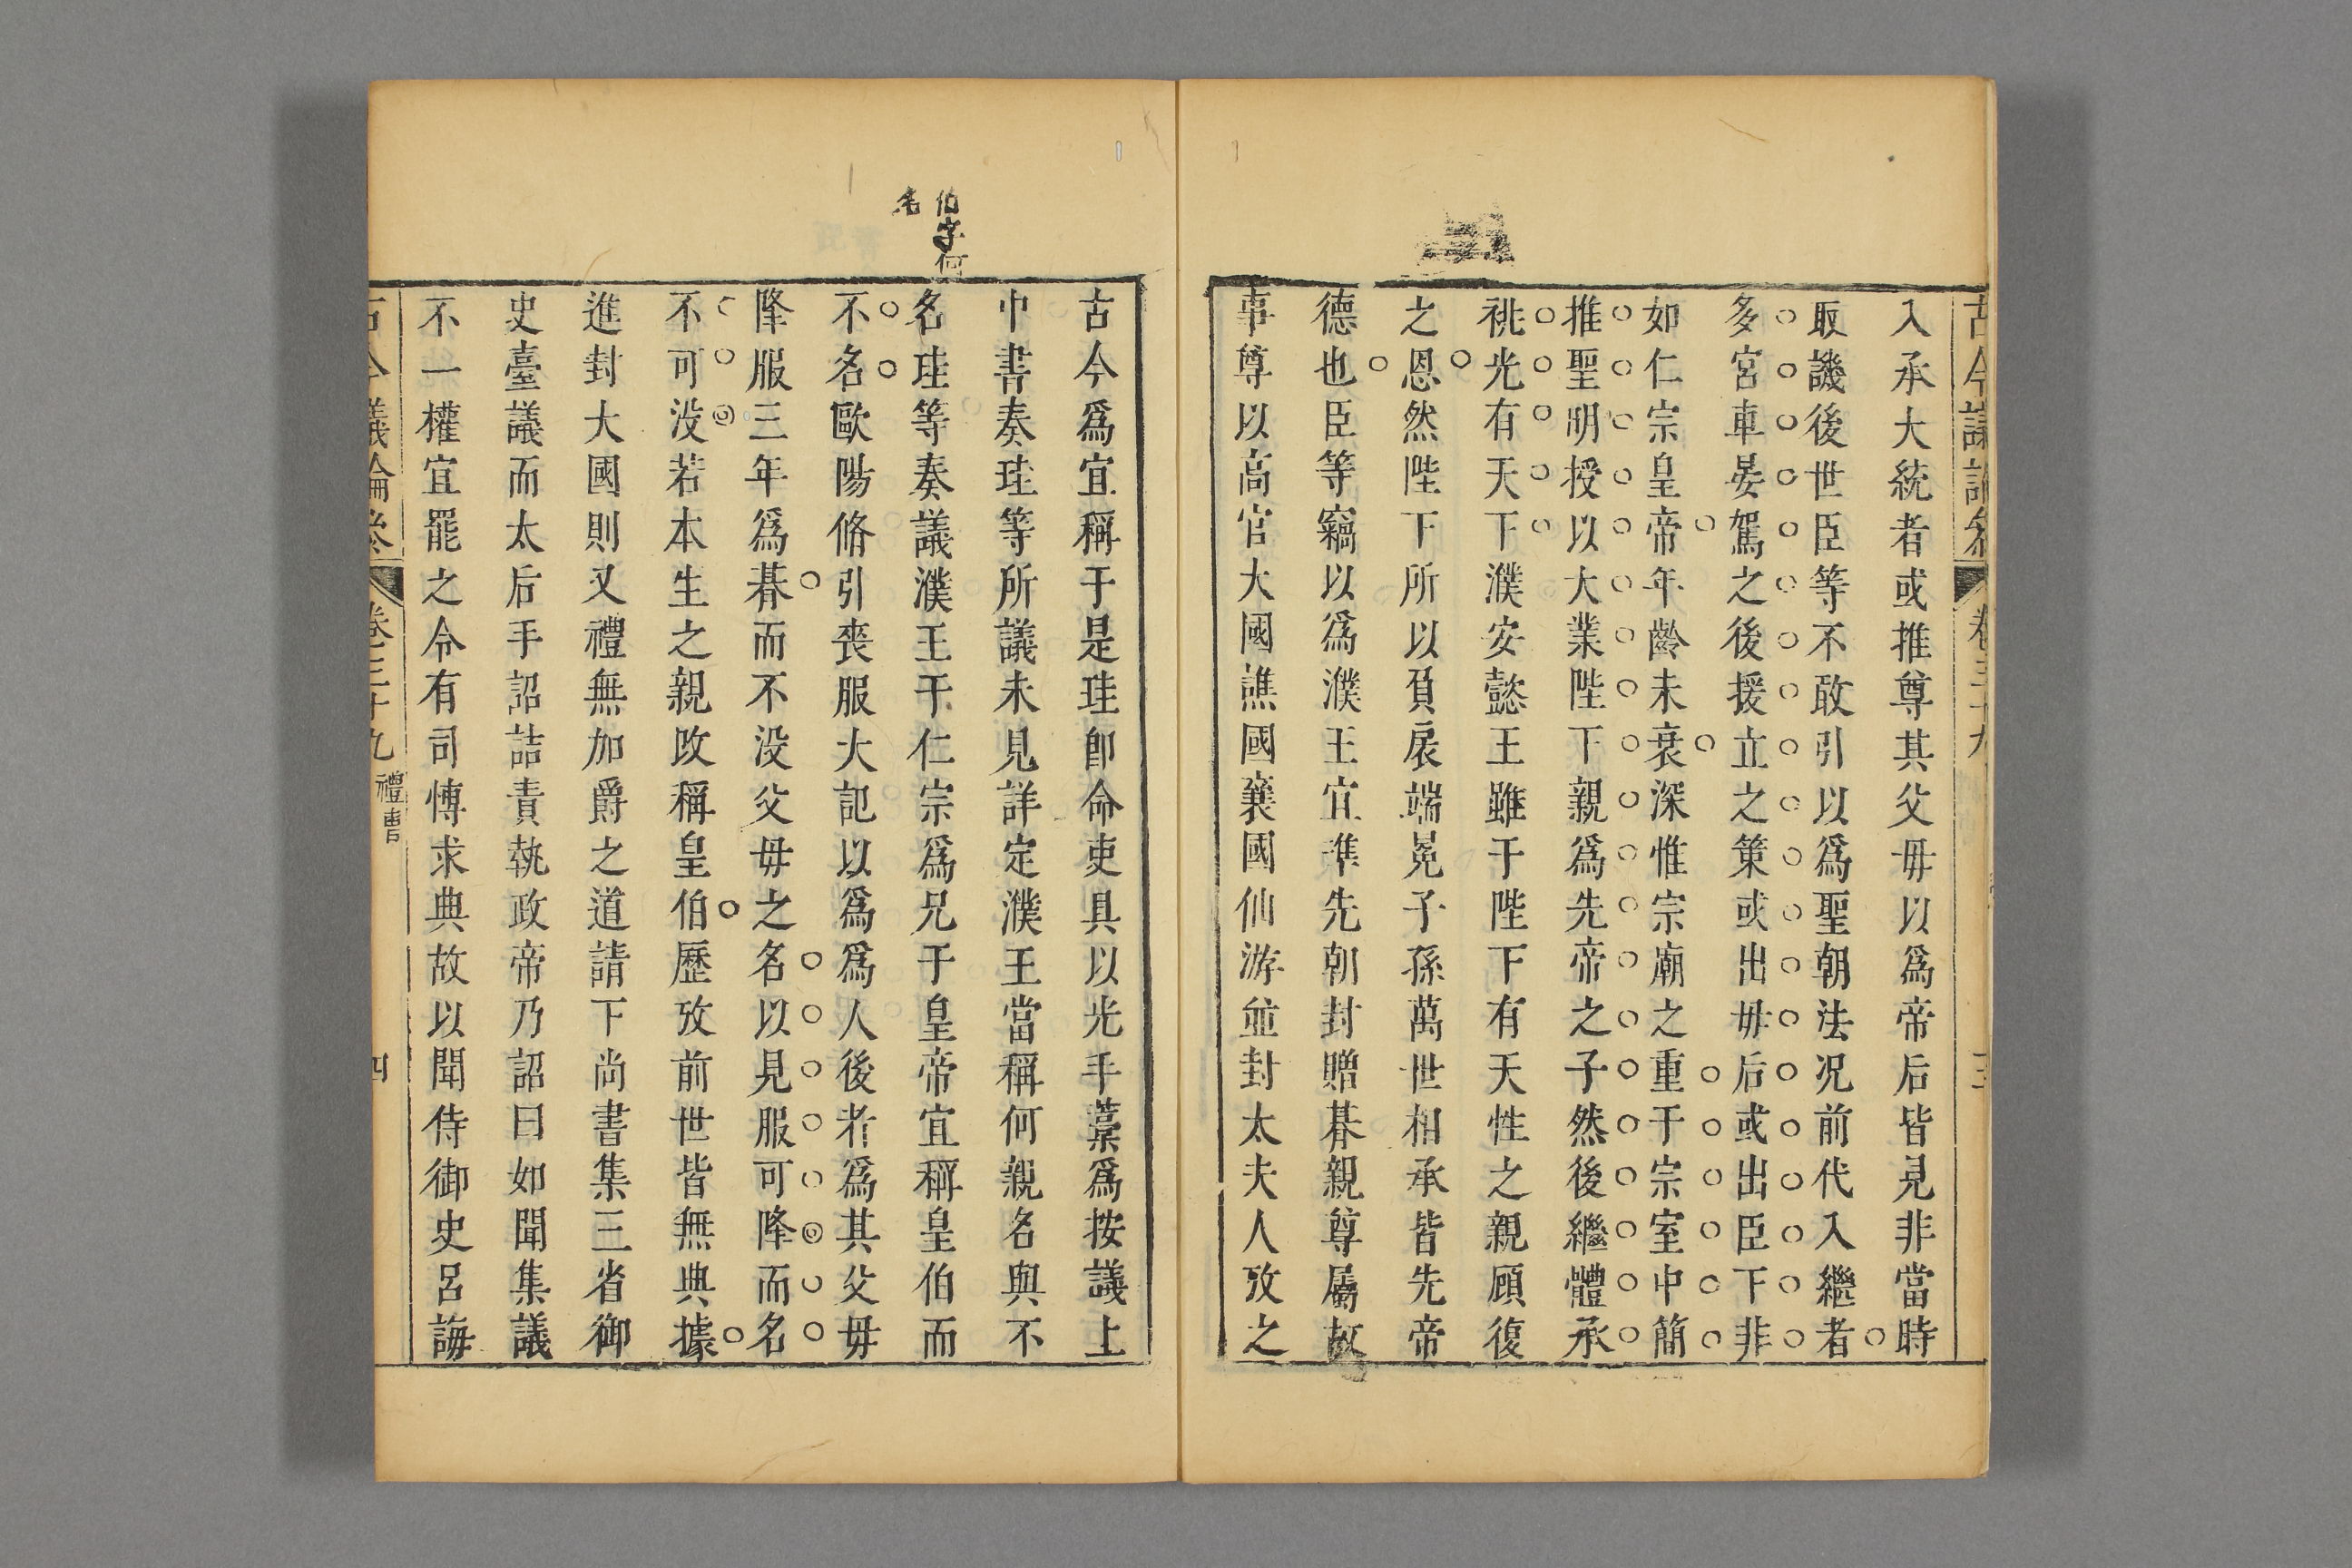 古今議論參 卷三十九 三
入承大統者或推尊其父毋以爲帝后皆見非當時
取譏後世臣等不敢引以爲聖朝法况前代入繼者
多宮車晏駕之後援立之策或出毋后或出臣下非
如仁宗皇帝年齡未衰深惟宗廟之重于宗室中簡
推聖明授以大業陛下親爲先帝之子然後繼體承
祧光有天下濮安懿王雖于陛下有天性之親顧復
之恩然陛下所以負扆端冕子孫萬世相承皆先帝
德也臣等竊以爲濮王宜準先朝封贈朞親尊屬故
事尊以高官大國譙國襄國仙游並封太夫人攷之
伯字何
名
古今爲宜稱于是珪卽命吏具以光手藁爲按議上
中書奏珪等所議未見詳定濮王當稱何親名與不
名珪等奏議濮王于仁宗爲兄于皇帝宜稱皇伯而
不名歐陽脩引喪服大記以爲爲人後者爲其父毋
降服三年爲朞而不没父毋之名以見服可降而名
不可没若本生之親改稱皇伯歷攷前世皆無典據
進封大國則又禮無加爵之道請下尚書集三省御
史臺議而太后手詔詰責執政帝乃詔曰如聞集議
不一權宜罷之令有司博求典故以聞侍御史呂誨
古今議論參 卷三十九 禮曹 四